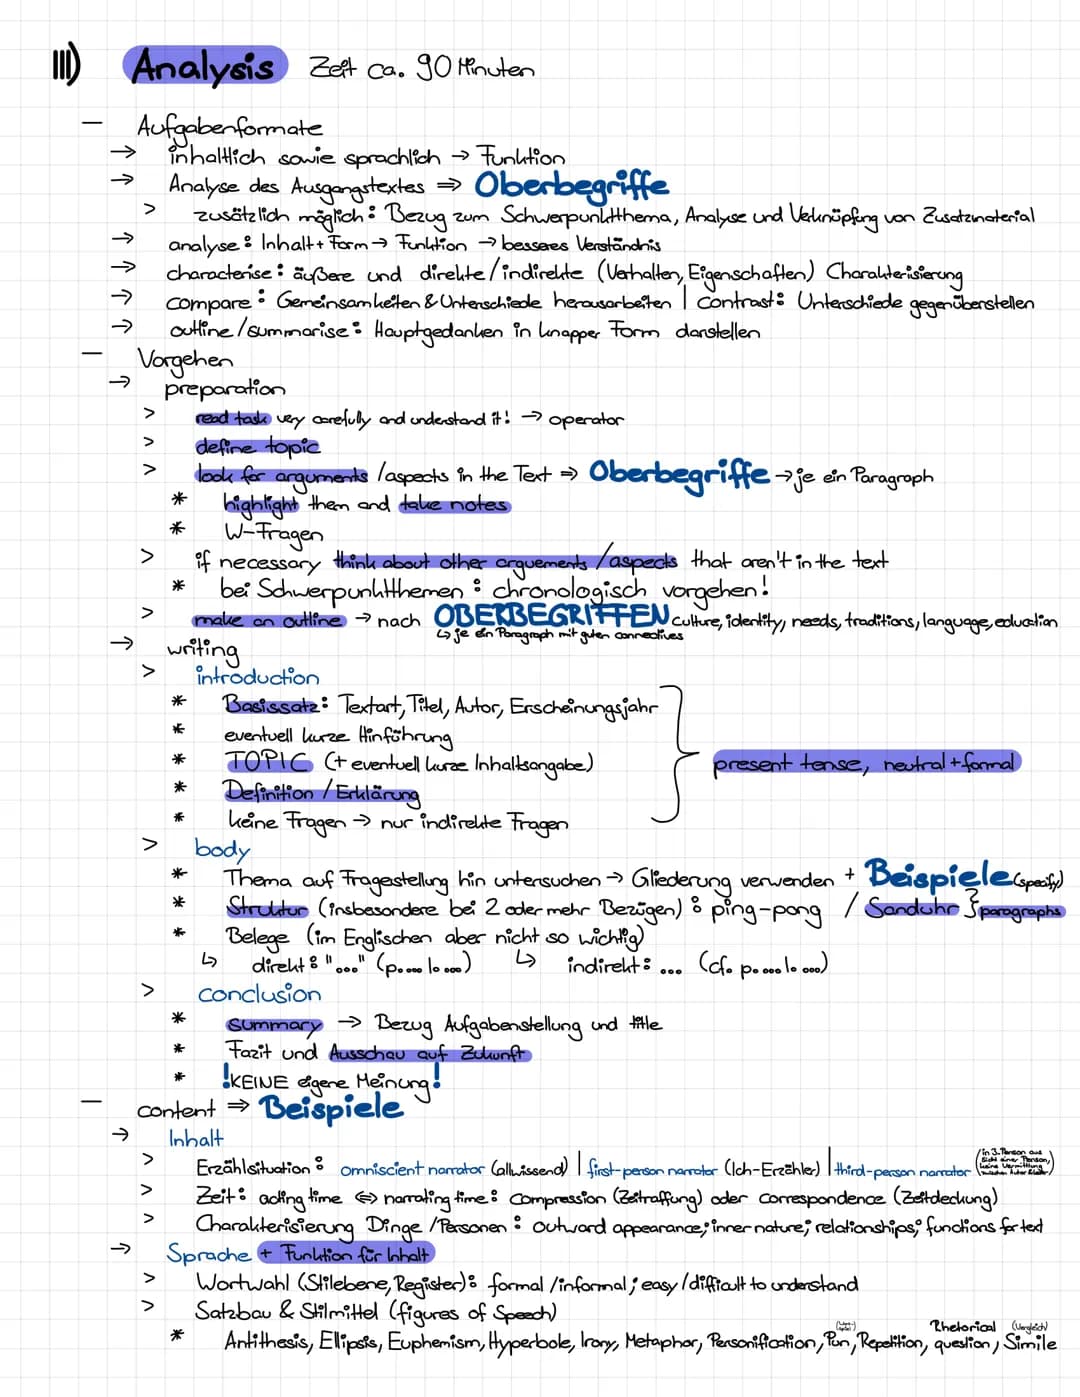 III) Analysis Zeit ca. 90 Minuten
– Aufgabenformate
→ inhaltlich sowie sprachlich → Funktion
→ Analyse des Ausgangstextes ⇒ Oberbegriffe
> zusätzlich möglich: Bezug zum Schwerpunktthema, Analyse und Verknüpfung von Zusatzmaterial
→ analyse: Inhalt + Form → Funktion → besseres Verständnis
→ characterise: äußere und direkte/indirekte (Verhalten, Eigenschaften) Charakterisierung
→ compare: Gemeinsamkeiten & Unterschiede herausarbeiten | contrast: Unterschiede gegenüberstellen
→ outline/summarise: Hauptgedanken in knapper Form darstellen
– Vorgehen
→ preparation
> read task very carefully and understand it! → operator
> define topic
> look for arguments /aspects in the Text ⇒ Oberbegriffe → je ein Paragraph
* highlight them and take notes
* W-Fragen
> if necessary think about other arguements /aspects that aren't in the text
* bei Schwerpunktthemen: chronologisch vorgehen!
> make an outline → nach OBERBEGRIFFEN culture, identity, needs, traditions, language, education
↳ je ein Paragraph mit guten connectives
→ writing
> introduction
* Basissatz: Textart, Titel, Autor, Erscheinungsjahr
* eventuell kurze Hinführung
* TOPIC (+ eventuell kurze Inhaltsangabe) present tense, neutral + formal
* Definition / Erklärung
* keine Fragen → nur indirekte Fragen
> body
* Thema auf Fragestellung hin untersuchen → Gliederung verwenden + Beispiele (specify)
* Struktur (insbesondere bei 2 oder mehr Bezügen): ping-pong / Sanduhr } paragraphs
* Belege (im Englischen aber nicht so wichtig)
↳ direkt: "..." (p.... l. ...) ↳ indirekt: ... (cf. p. ... l. ...)
> conclusion
* summary → Bezug Aufgabenstellung und title
* Fazit und Ausschau auf Zukunft
* !KEINE eigene Meinung!
– content ⇒ Beispiele
→ Inhalt
> Erzählsituation: omniscient narrator (allwissend) | first-person narrator (Ich-Erzähler) | third-person narrator (in 3. Person aus Sicht einer Person, keine Vermittlung zwischen Autor & Leser)
> Zeit: acting time ⇔ narrating time: compression (Zeitraffung) oder correspondence (Zeitdeckung)
> Charakterisierung Dinge /Personen: outward appearance; inner nature; relationships; functions for text
→ Sprache + Funktion für Inhalt
> Wortwahl (Stilebene, Register): formal /informal; easy/difficult to understand
> Satzbau & Stilmittel (figures of Speech)
* Antithesis, Ellipsis, Euphemism, Hyperbole, Irony, Metaphor, Personification, Pun, Repetition, Rhetorical question, Simile (Vergleich)